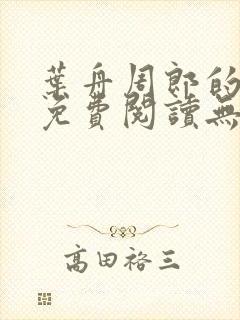 葉舟周郎的
免費閱讀無
高田裕三